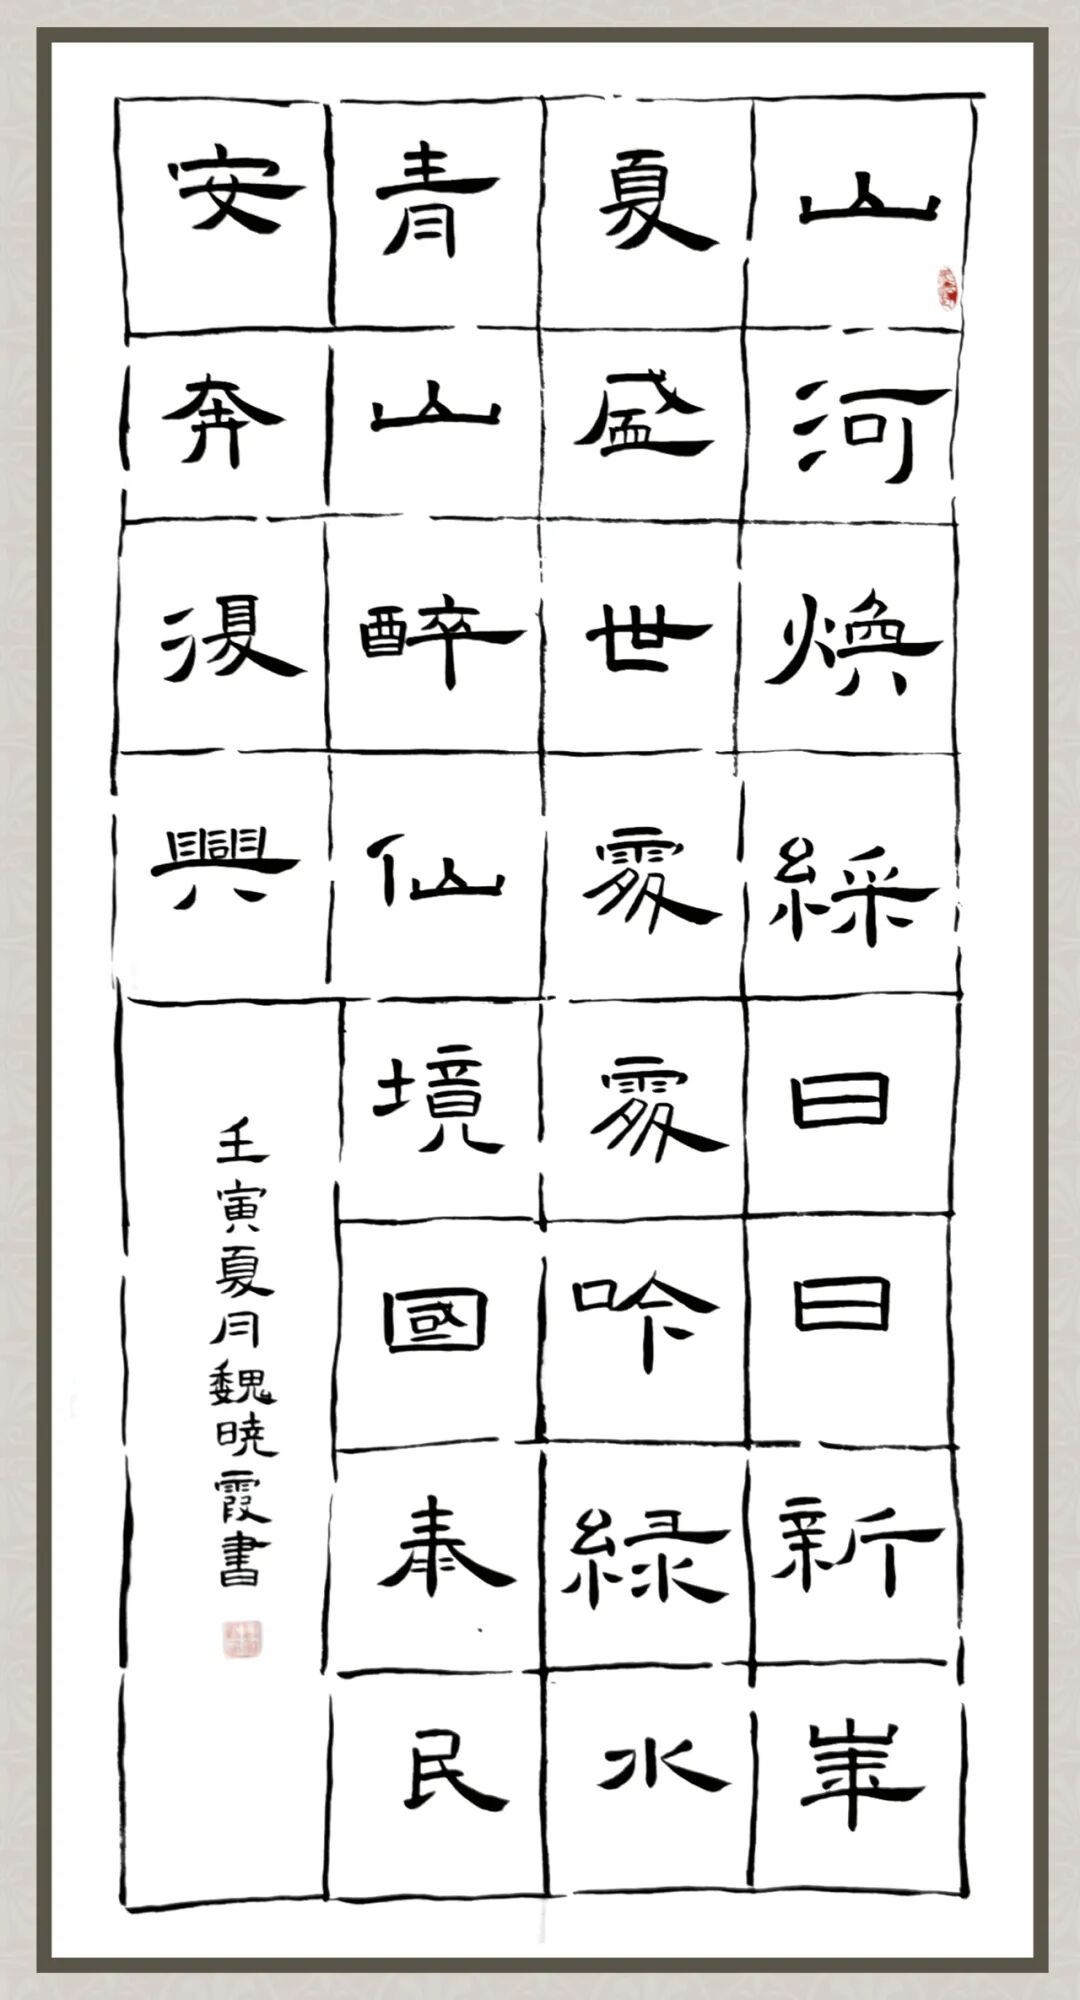 山河煥綵日日新崋
夏盛世處處吟緑水
青山醉仙境國泰民
安奔復興
壬寅夏月魏暁霞書